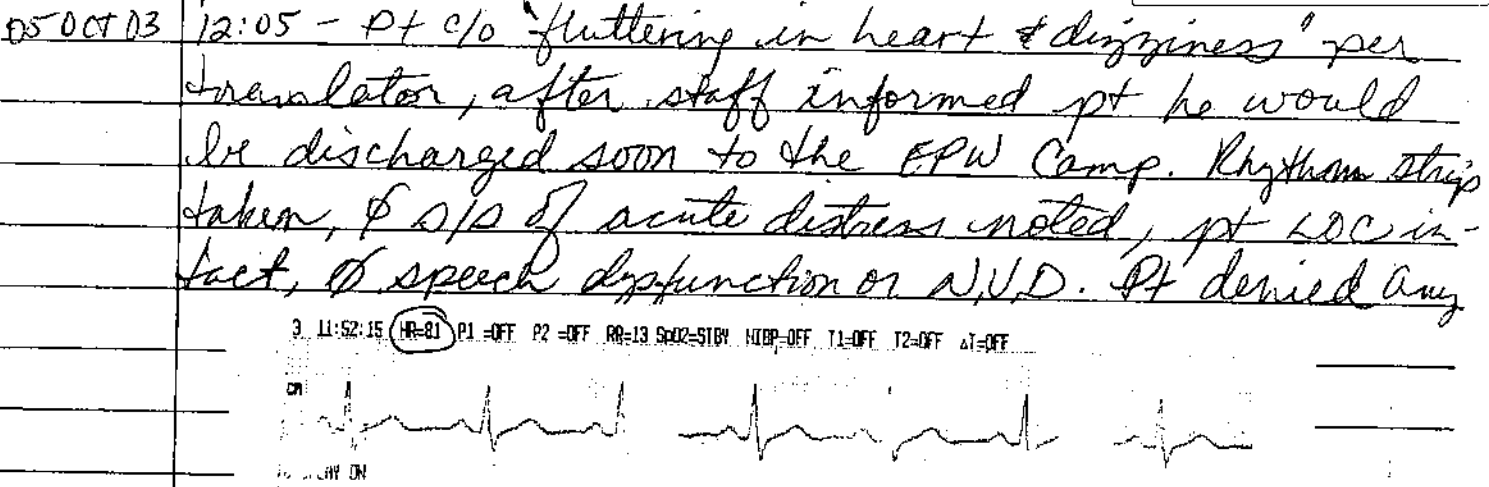 05 OCT 03 12:05 - Pt c/o "fluttering in heart & dizziness" per
translator, after staff informed pt he would
be discharged soon to the EPW Camp. Rhythm strip
taken, Ø s/s of acute distress noted, pt LOC in-
tact, Ø speech dysfunction or N,V,D. Pt denied any
3 11:52:15 HR=81 P1 =OFF P2 =OFF RR=13 SpO2=STBY NIBP=OFF T1=OFF T2=OFF ΔT=OFF
CM
ON